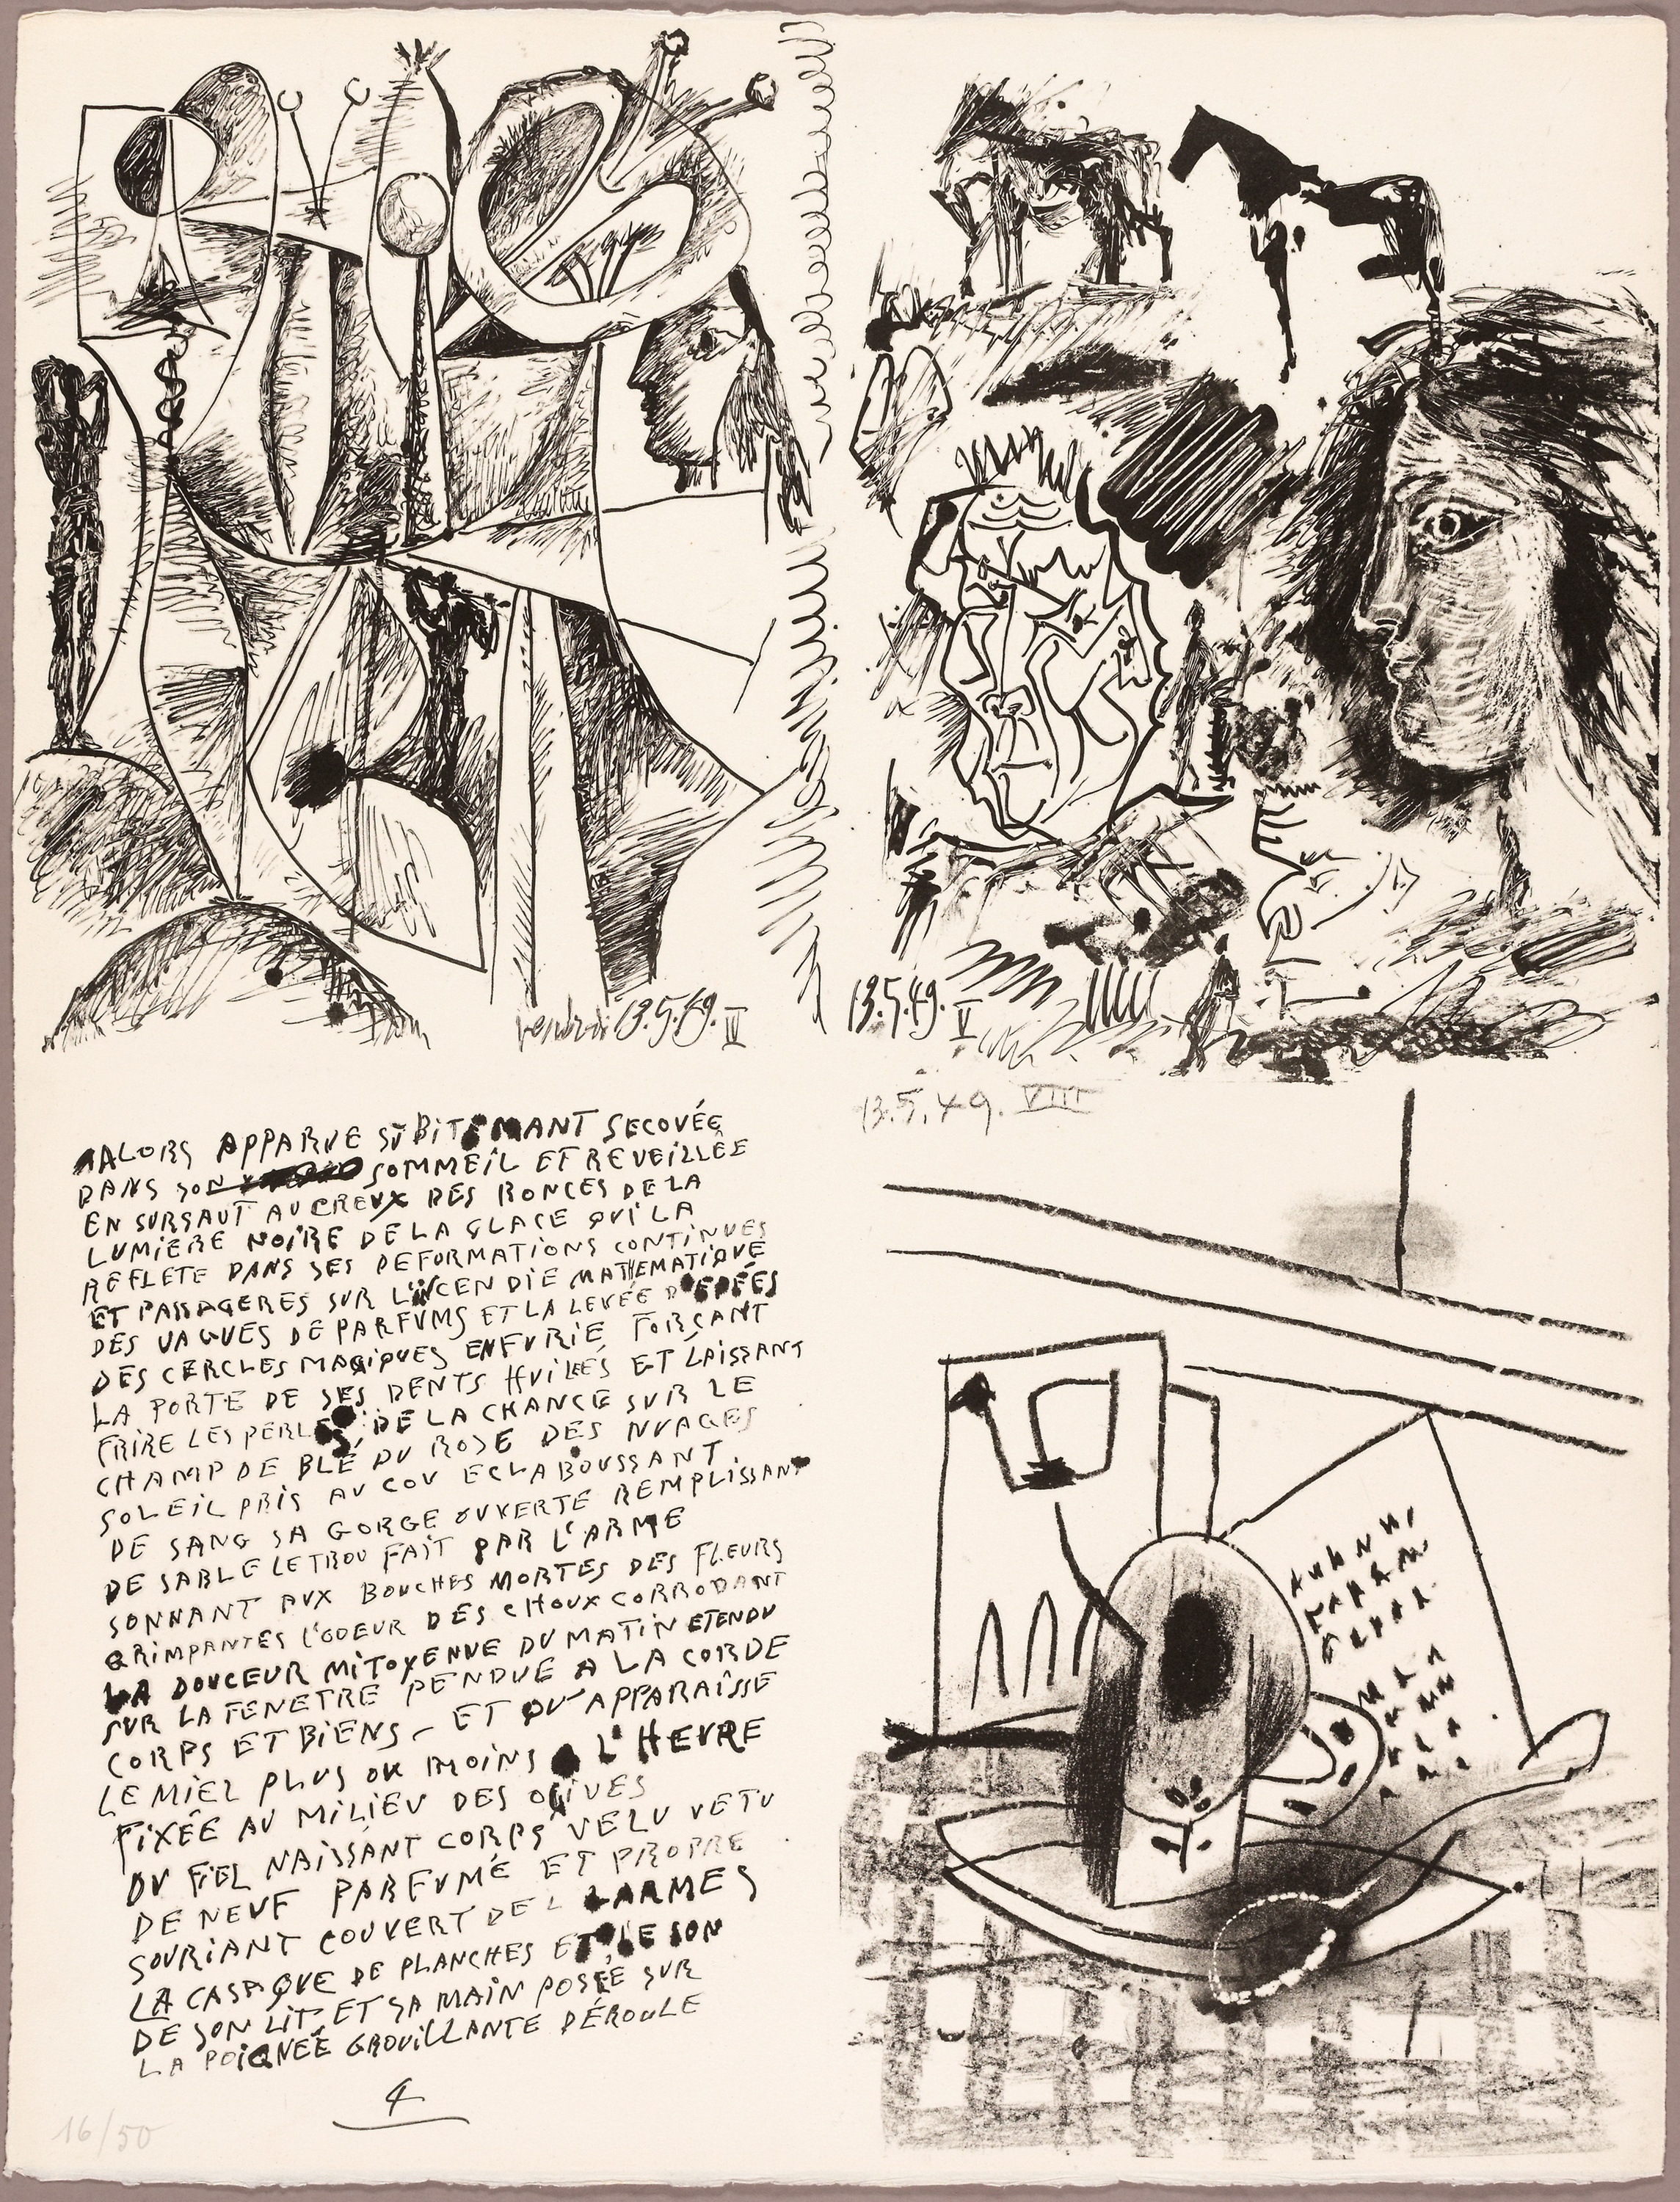 vendredi 13.5.49. IV
13.5.49. V
13.5.49. VIII
ALORS APPARUE SUBITEMANT SECOUÉE
DANS SON SOMMEIL ET REVEILLÉE
EN SURSAUT AU CREUX DES RONCES DE LA
LUMIERE NOIRE DE LA GLACE QUI LA
REFLETE DANS SES DEFORMATIONS CONTINUES
ET PASSAGERES SUR L'INCENDIE MATHEMATIQUE
DES VAGUES DE PARFUMS ET LA LEVÉE D'EPÉES
DES CERCLES MAGIQUES EN FURIE FORÇANT
LA PORTE DE SES DENTS HUILÉES ET LAISSANT
FRIRE LES PERLES DE LA CHANCE SUR LE
CHAMP DE BLÉ DU ROSE DES NUAGES
SOLEIL PRIS AU COU ECLABOUSSANT
DE SANG SA GORGE OUVERTE REMPLISSANT
DE SABLE LE TROU FAIT PAR L'ARME
SONNANT AUX BOUCHES MORTES DES FLEURS
GRIMPANTES L'ODEUR DES CHOUX CORRODANT
LA DOUCEUR MITOYENNE DU MATIN ETENDU
SUR LA FENETRE PENDUE A LA CORDE
CORPS ET BIENS - ET QU'APPARAISSE
LE MIEL PLUS OU MOINS L'HEURE
FIXÉE AU MILIEU DES OLIVES
DU FIEL NAISSANT CORPS VELU VETU
DE NEUF PARFUMÉ ET PROPRE
SOURIANT COUVERT DE LARMES
LA CASAQUE DE PLANCHES ET LE SON
DE SON LIT ET SA MAIN POSÉE SUR
LA POIGNÉE GROUILLANTE DÉROULE
4
16/50